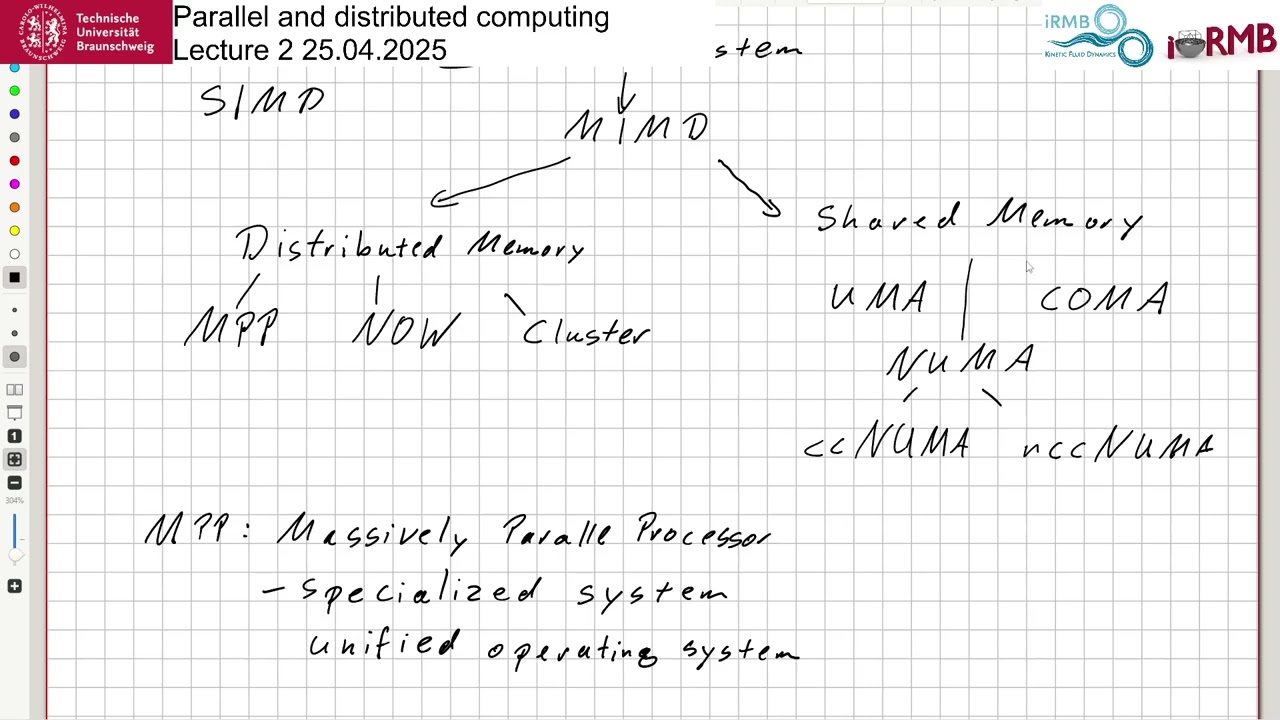 Technische
Universität
Braunschweig
Parallel and distributed computing
Lecture 2 25.04.2025
iRMB
KINETIC FLUID DYNAMICS
iRMB
stem
SIMD
MIMD
Distributed Memory
Shared Memory
MPP NOW Cluster
UMA COMA
NUMA
ccNUMA nccNUMA
MPP: Massively Paralle Processor
- specialized system
unified operating system
1
304%